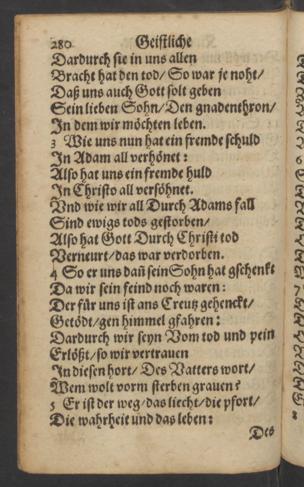 280 Geistliche
Dardurch sie in uns allen
Bracht hat den tod/ So war je noht/
Daß uns auch Gott solt geben
Sein lieben Sohn/ Den gnadenthron/
In dem wir möchten leben.
3 Wie uns nun hat ein fremde schuld
In Adam all verhönet:
Also hat uns ein fremde huld
In Christo all versöhnet.
Vnd wie wir all Durch Adams fall
Sind ewigs tods gestorben/
Also hat Gott Durch Christi tod
Verneurt/ das war verdorben.
4 So er uns dañ sein Sohn hat gschenkt
Da wir sein feind noch waren:
Der für uns ist ans Creutz gehenckt/
Getödt/ gen himmel gfahren:
Dardurch wir seyn Vom tod und pein
Erlößt/ so wir vertrauen
In diesen hort/ Des Vatters wort/
Wem wolt vorm sterben grauen?
5 Er ist der weg/ das liecht/ die pfort/
Die wahrheit und das leben:
Des